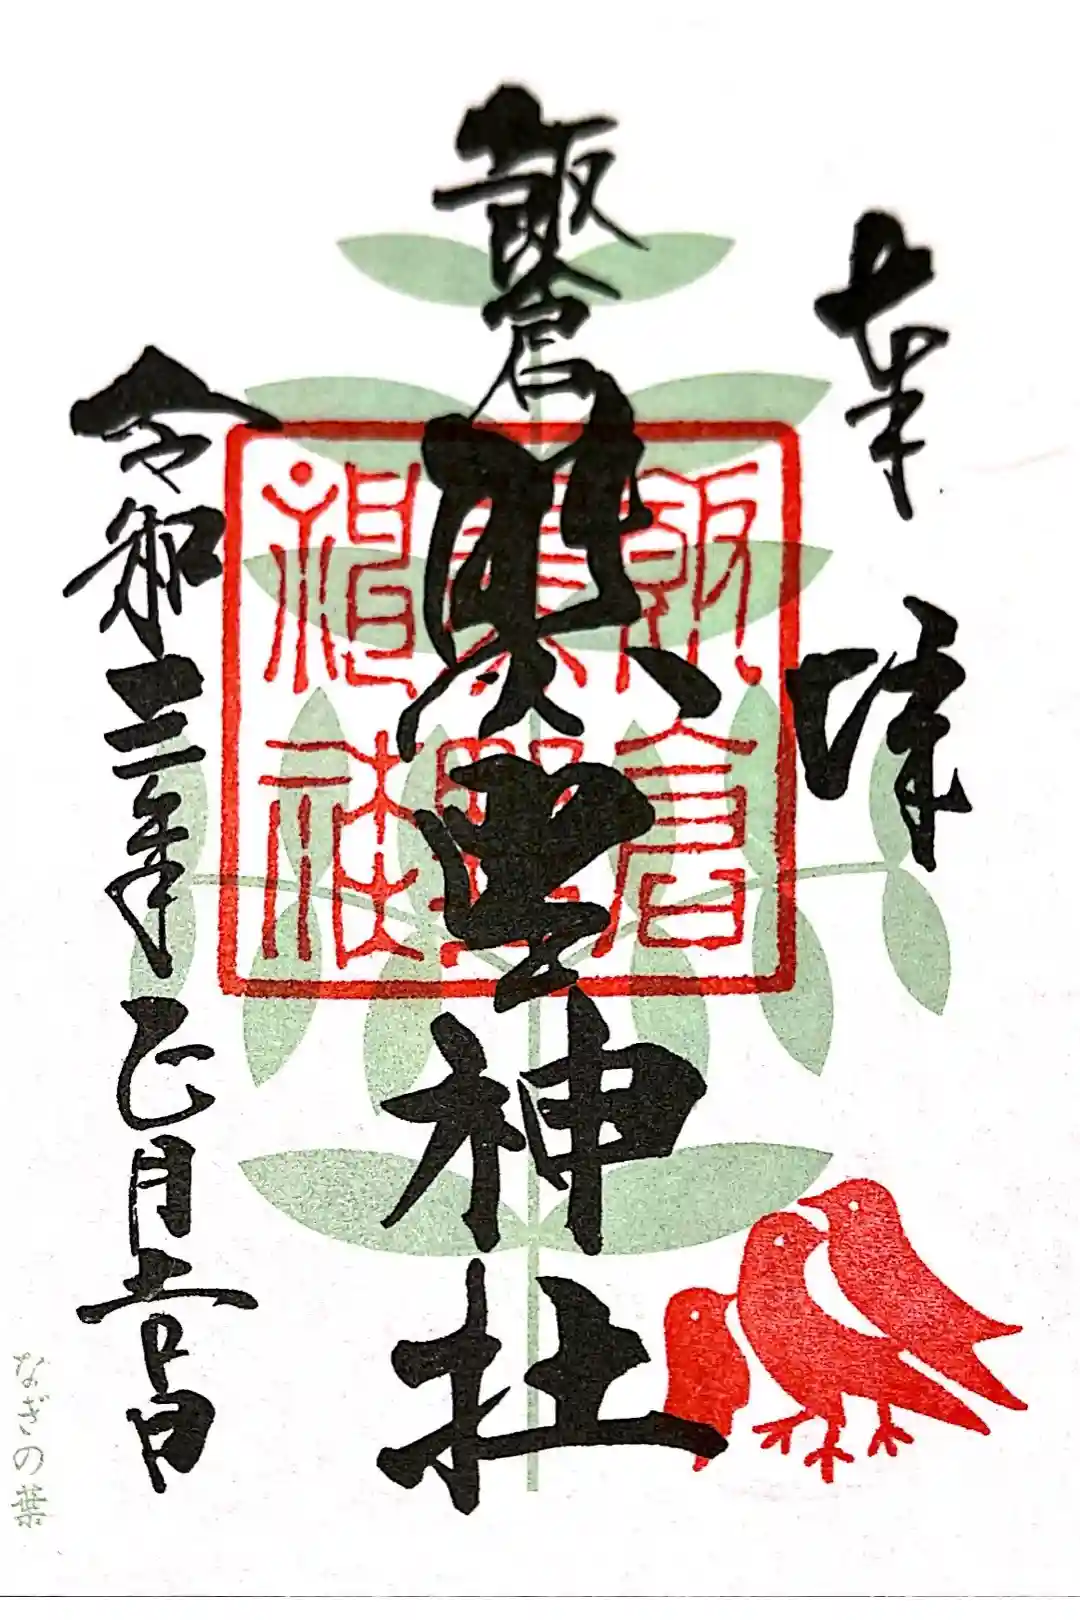 奉拝
飯倉
熊野神社
飯倉
熊野
神社
令和三年正月吉日
なぎの葉